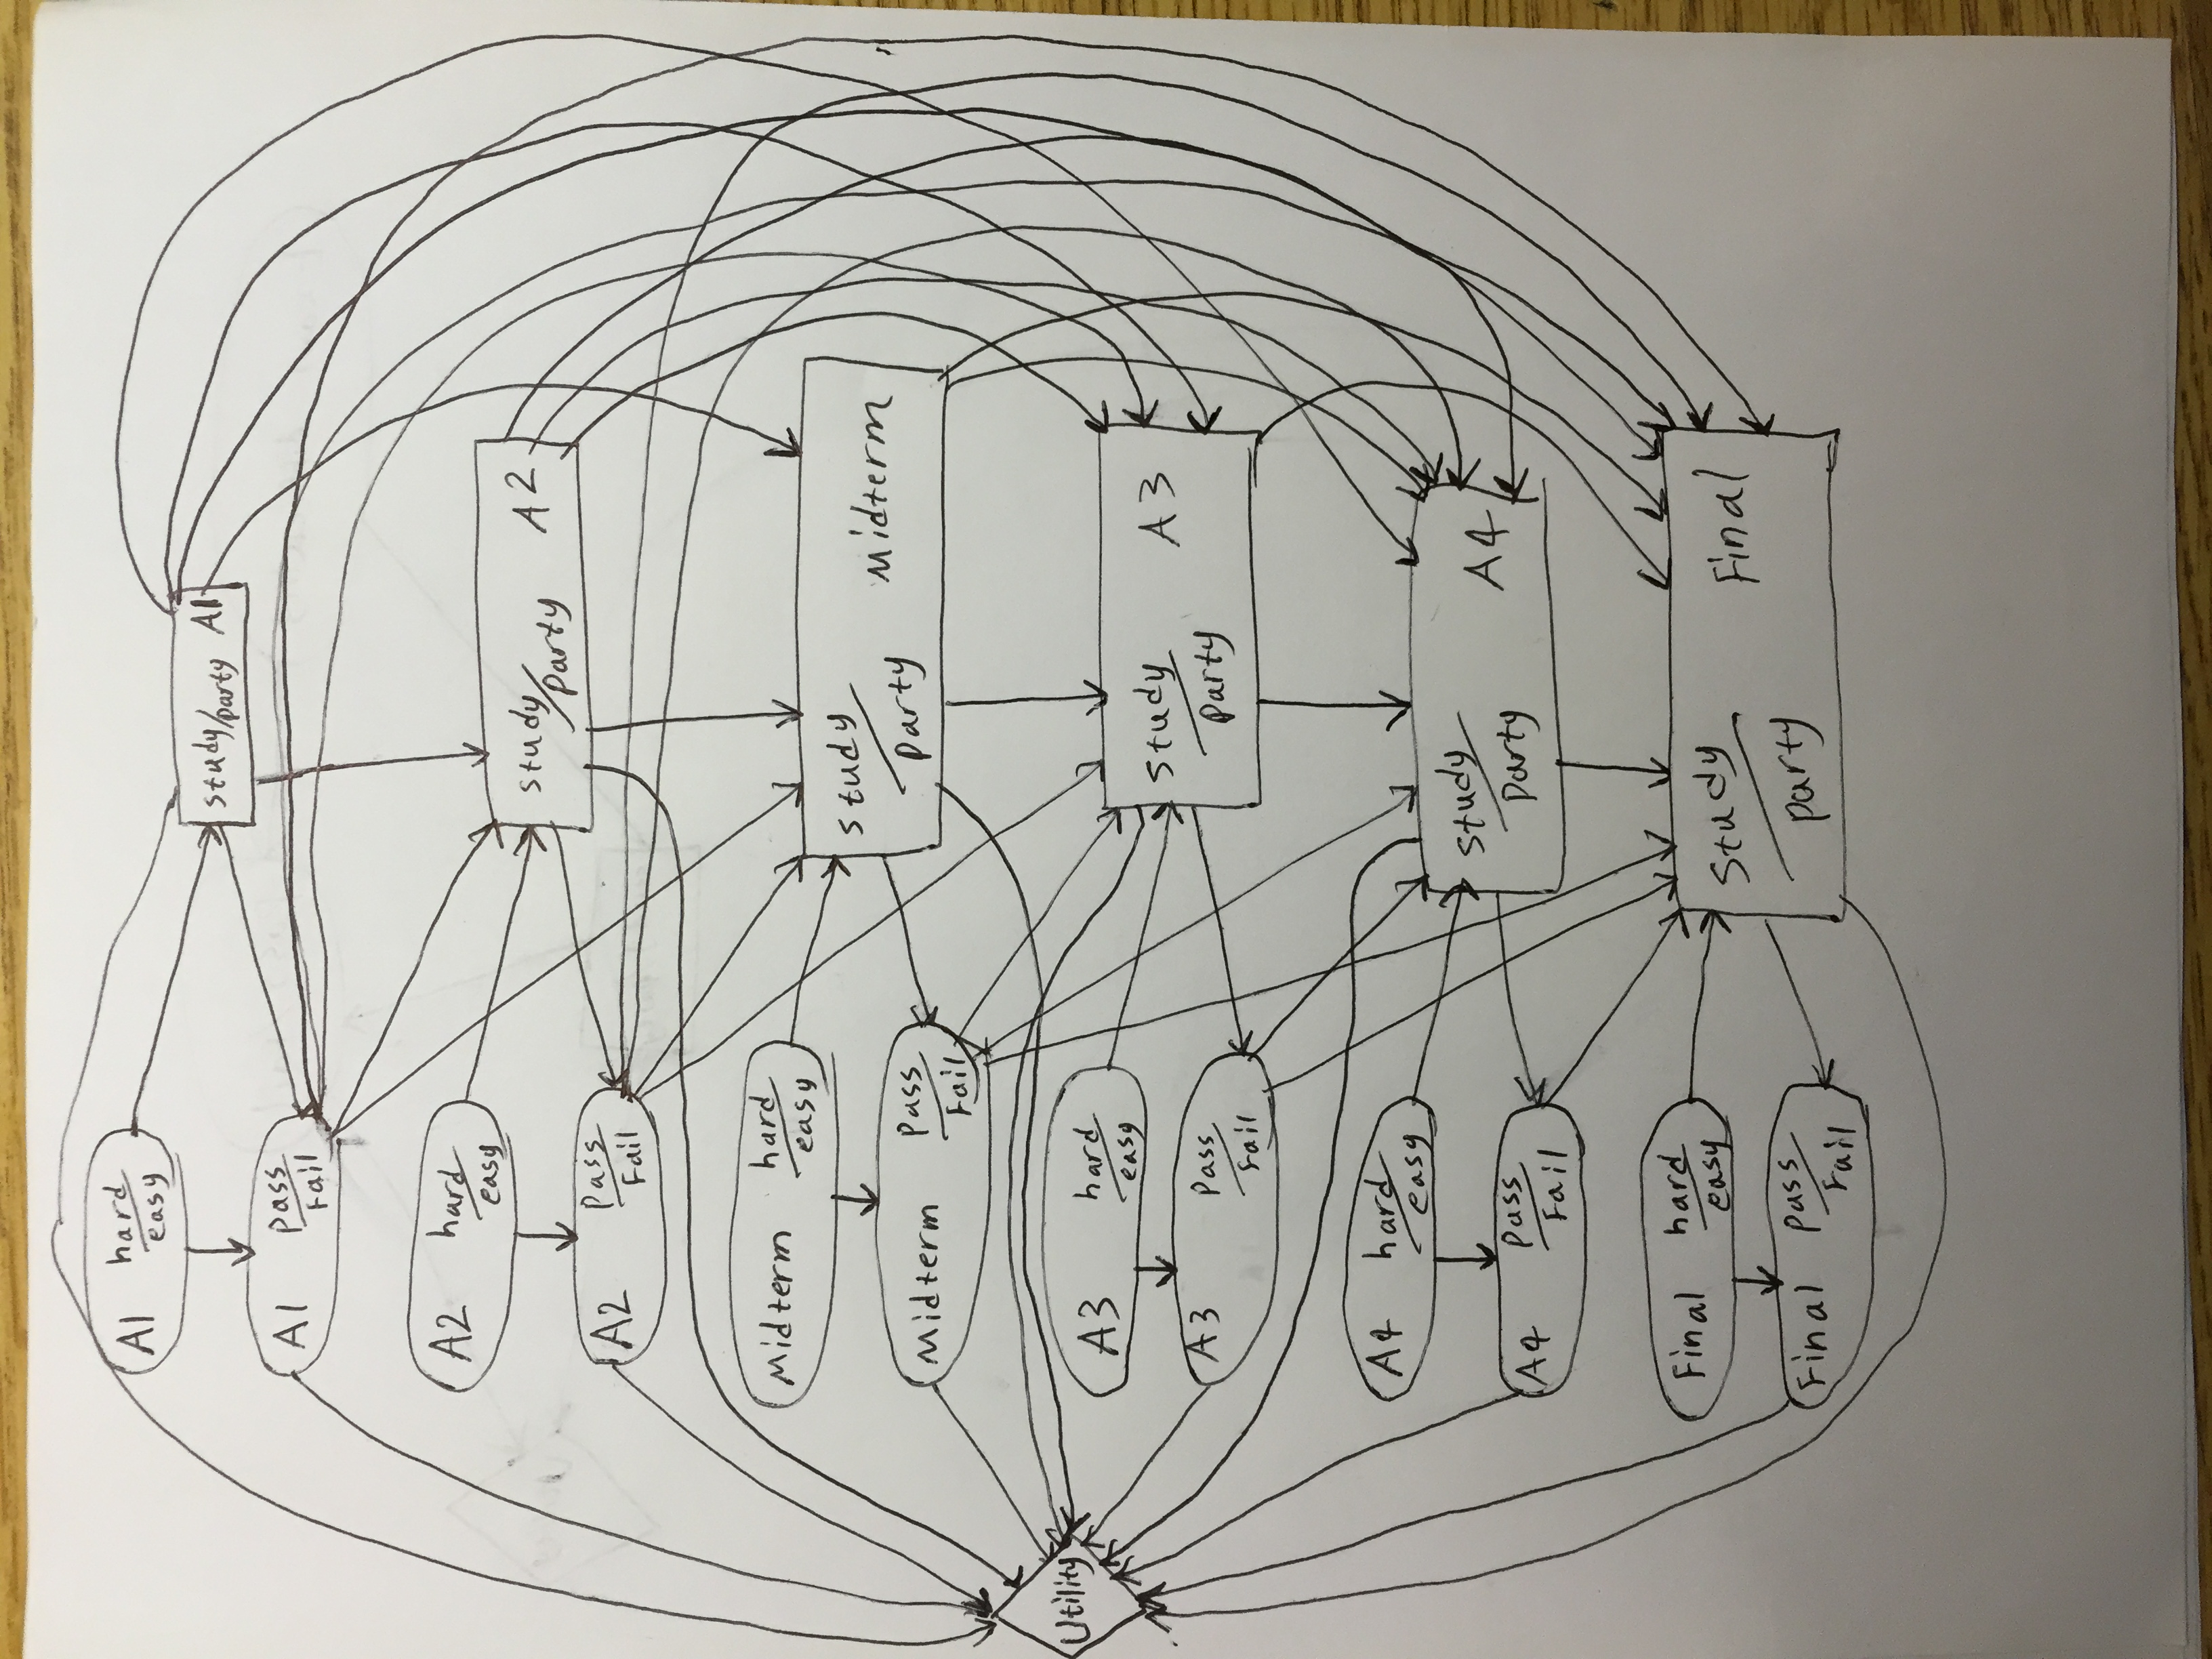 A1 hard/
easy
study/party A1
A1 Pass/
Fail
A2 hard/
easy
study/
party A2
A2 Pass/
Fail
Midterm hard/
easy
study/
party Midterm
Midterm Pass/
Fail
Utility
A3 hard/
easy
study/
party A3
A3 Pass/
Fail
A4 hard/
easy
study/
party A4
A4 Pass/
Fail
Final hard/
easy
study/
party Final
Final Pass/
Fail